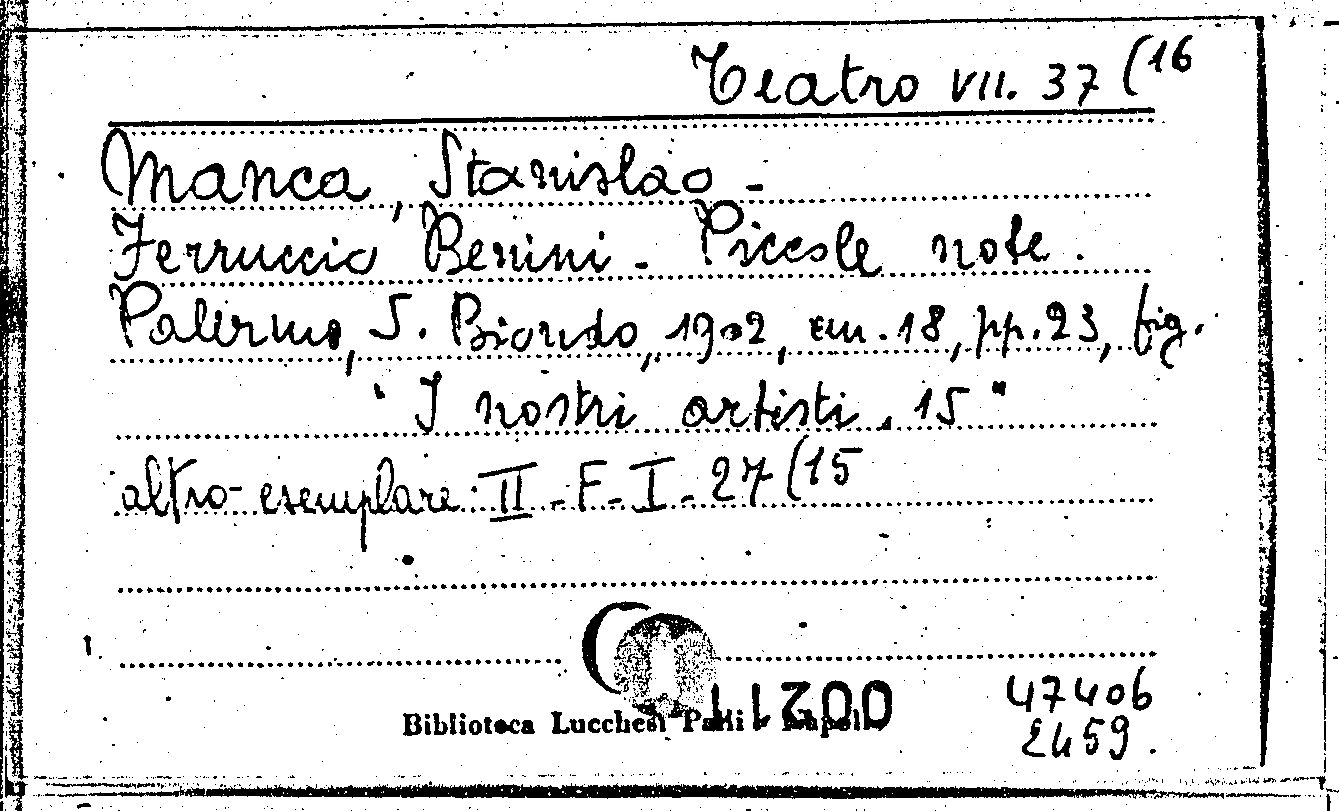 Teatro VII. 37 (16
Manca, Stanislao -
Ferruccio Benini - Piccole note.
Palermo, S. Biondo, 1902, cm. 18, pp. 23, fig.
"I nostri artisti, 15"
altro esemplare: II - F - I - 27 (15
47406
Biblioteca Lucchesi Palli Napoli
2459.